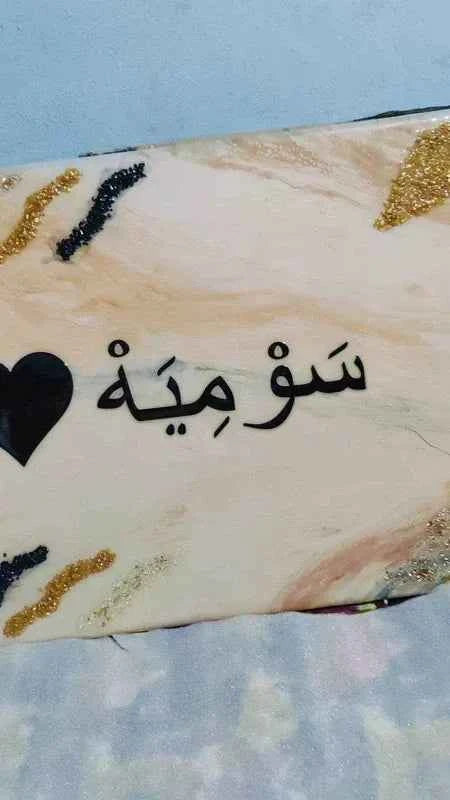 سَوْمِيَهْ